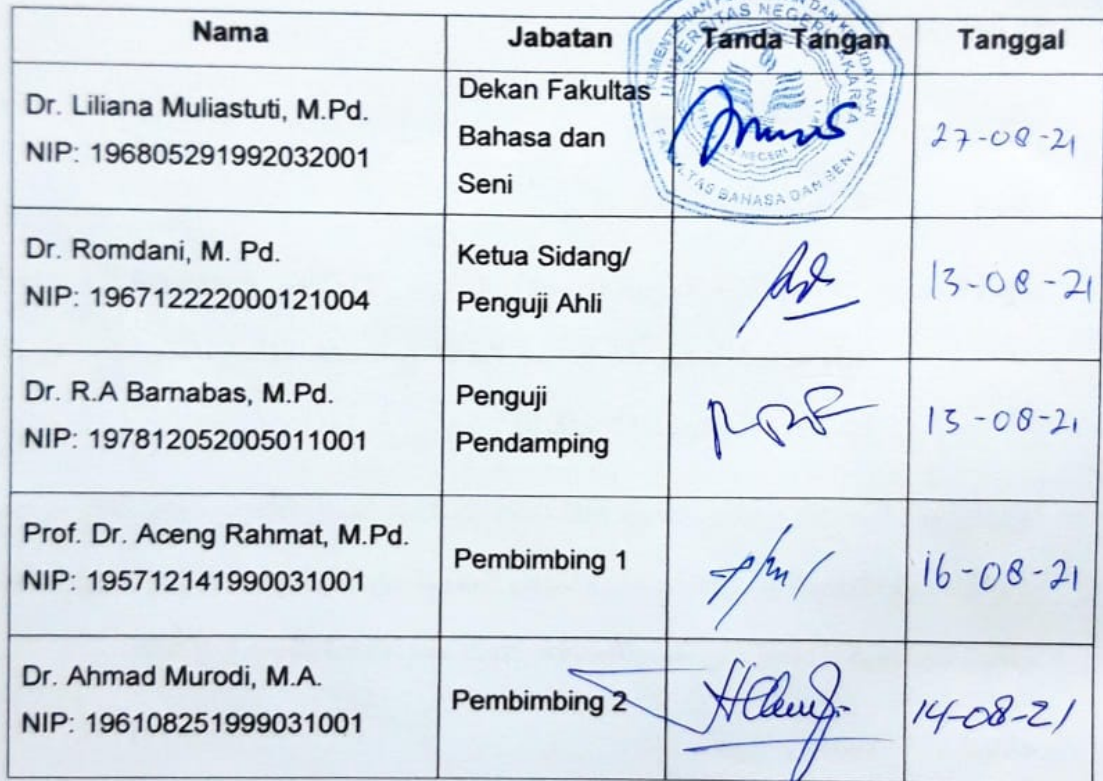 Nama Jabatan Tanda Tangan Tanggal
Dr. Liliana Muliastuti, M.Pd.
NIP: 196805291992032001
Dekan Fakultas
Bahasa dan
Seni
27-08-21
Dr. Romdani, M. Pd.
NIP: 196712222000121004
Ketua Sidang/
Penguji Ahli
13-08-21
Dr. R.A Barnabas, M.Pd.
NIP: 197812052005011001
Penguji
Pendamping
13-08-21
Prof. Dr. Aceng Rahmat, M.Pd.
NIP: 195712141990031001
Pembimbing 1
16-08-21
Dr. Ahmad Murodi, M.A.
NIP: 196108251999031001
Pembimbing 2
14-08-21
UNIVERSITAS NEGERI JAKARTA
FAKULTAS BAHASA DAN SENI